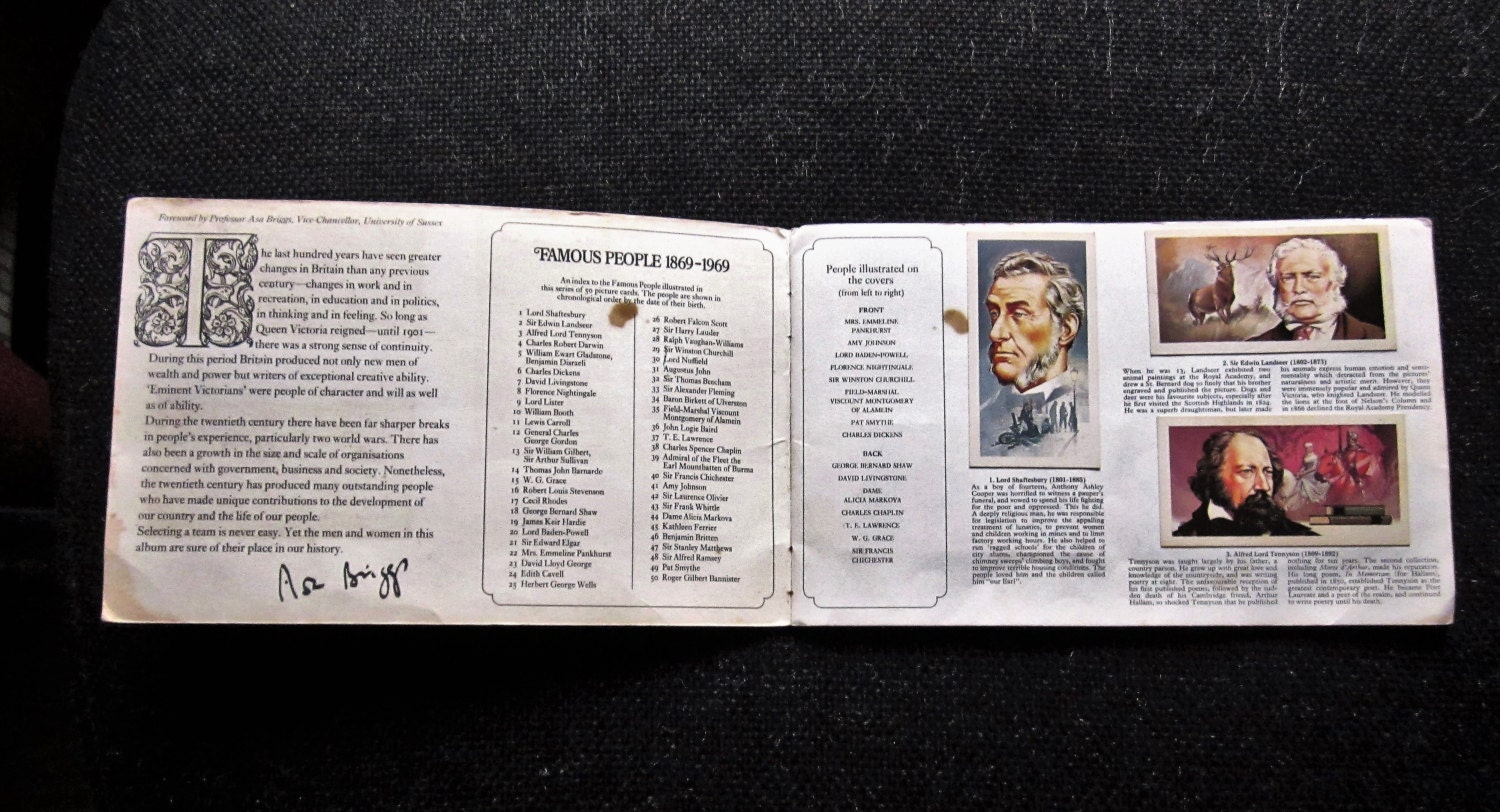 Foreword by Professor Asa Briggs, Vice-Chancellor, University of Sussex
The last hundred years have seen greater
changes in Britain than any previous
century—changes in work and in
recreation, in education and in politics,
in thinking and in feeling. So long as
Queen Victoria reigned—until 1901—
there was a strong sense of continuity.
During this period Britain produced not only new men of
wealth and power but writers of exceptional creative ability.
'Eminent Victorians' were people of character and will as well
as of ability.
During the twentieth century there have been far sharper breaks
in people's experience, particularly two world wars. There has
also been a growth in the size and scale of organisations
concerned with government, business and society. Nonetheless,
the twentieth century has produced many outstanding people
who have made unique contributions to the development of
our country and the life of our people.
Selecting a team is never easy. Yet the men and women in this
album are sure of their place in our history.
Asa Briggs
FAMOUS PEOPLE 1869-1969
An index to the Famous People illustrated in
this series of 50 picture cards. The people are shown in
chronological order by the date of their birth.
1 Lord Shaftesbury
2 Sir Edwin Landseer
3 Alfred Lord Tennyson
4 Charles Robert Darwin
5 William Ewart Gladstone,
Benjamin Disraeli
6 Charles Dickens
7 David Livingstone
8 Florence Nightingale
9 Lord Lister
10 William Booth
11 Lewis Carroll
12 General Charles
George Gordon
13 Sir William Gilbert,
Sir Arthur Sullivan
14 Thomas John Barnardo
15 W. G. Grace
16 Robert Louis Stevenson
17 Cecil Rhodes
18 George Bernard Shaw
19 James Keir Hardie
20 Lord Baden-Powell
21 Sir Edward Elgar
22 Mrs. Emmeline Pankhurst
23 David Lloyd George
24 Edith Cavell
25 Herbert George Wells
26 Robert Falcon Scott
27 Sir Harry Lauder
28 Ralph Vaughan-Williams
29 Sir Winston Churchill
30 Lord Nuffield
31 Augustus John
32 Sir Thomas Beecham
33 Sir Alexander Fleming
34 Baron Birkett of Ulverston
35 Field-Marshal Viscount
Montgomery of Alamein
36 John Logie Baird
37 T. E. Lawrence
38 Charles Spencer Chaplin
39 Admiral of the Fleet the
Earl Mountbatten of Burma
40 Sir Francis Chichester
41 Amy Johnson
42 Sir Laurence Olivier
43 Sir Frank Whittle
44 Dame Alicia Markova
45 Kathleen Ferrier
46 Benjamin Britten
47 Sir Stanley Matthews
48 Sir Alfred Ramsey
49 Pat Smythe
50 Roger Gilbert Bannister
People illustrated on
the covers
(from left to right)
FRONT
MRS. EMMELINE
PANKHURST
AMY JOHNSON
LORD BADEN-POWELL
FLORENCE NIGHTINGALE
SIR WINSTON CHURCHILL
FIELD-MARSHAL
VISCOUNT MONTGOMERY
OF ALAMEIN
PAT SMYTHE
CHARLES DICKENS
BACK
GEORGE BERNARD SHAW
DAVID LIVINGSTONE
DAME
ALICIA MARKOVA
CHARLES CHAPLIN
T. E. LAWRENCE
W. G. GRACE
SIR FRANCIS
CHICHESTER
1. Lord Shaftesbury (1801-1885)
As a boy of fourteen, Anthony Ashley
Cooper was horrified to witness a pauper's
funeral, and vowed to spend his life fighting
for the poor and oppressed. This he did.
A deeply religious man, he was responsible
for legislation to improve the appalling
treatment of lunatics, to prevent women
and children working in mines and to limit
factory working hours. He also helped to
run 'ragged schools' for the children of
city slums, championed the cause of
chimney sweeps' climbing boys, and fought
to improve terrible housing conditions. The
people loved him and the children called
him "our Earl".
2. Sir Edwin Landseer (1802-1873)
When he was 13, Landseer exhibited two
animal paintings at the Royal Academy, and
drew a St. Bernard dog so finely that his brother
engraved and published the picture. Dogs and
deer were his favourite subjects, especially after
he first visited the Scottish Highlands in 1824.
He was a superb draughtsman, but later made
his animals express human emotion and senti-
mentality which detracted from the pictures'
naturalness and artistic merit. However, they
were immensely popular and admired by Queen
Victoria, who knighted Landseer. He modelled
the lions at the foot of Nelson's Column and
in 1866 declined the Royal Academy Presidency.
3. Alfred Lord Tennyson (1809-1892)
Tennyson was taught largely by his father, a
country parson. He grew up with great love and
knowledge of the countryside, and was writing
poetry at eight. The unfavourable reception of
his first published poems, followed by the sud-
den death of his Cambridge friend, Arthur
Hallam, so shocked Tennyson that he published
nothing for ten years. The second collection,
including Morte d'Arthur, made his reputation.
His long poem, In Memoriam (for Hallam),
published in 1850, established Tennyson as the
greatest contemporary poet. He became Poet
Laureate and a peer of the realm, and continued
to write poetry until his death.